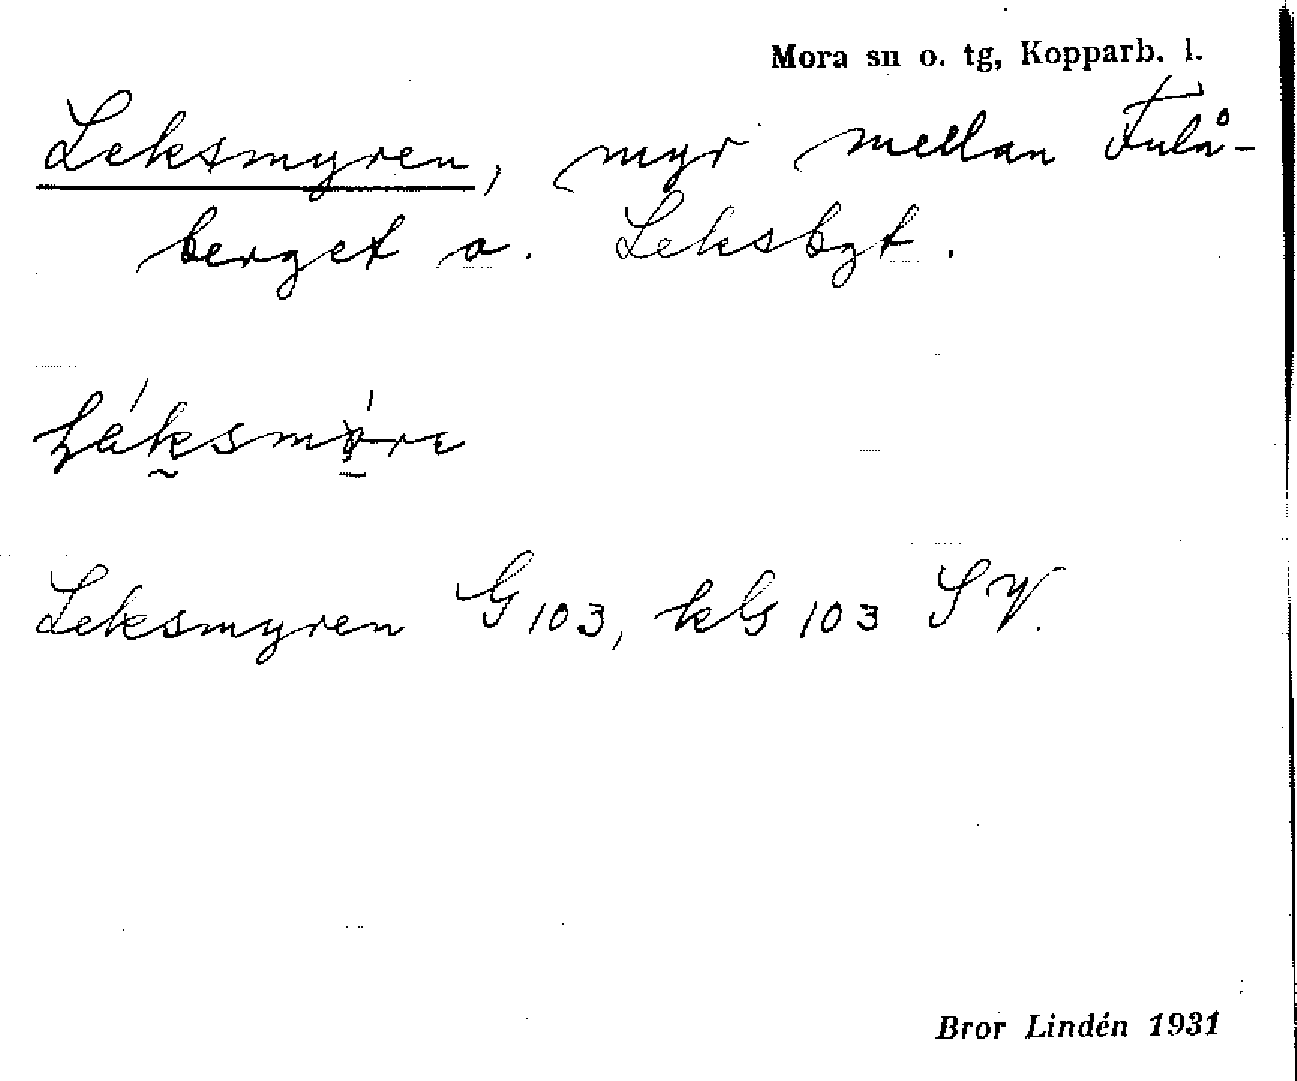 Mora sn o. tg, Kopparb. l.
Leksmyren, myr mellan Fulå-
berget o. Leksbgt.
Leksmyren G 103, kG 103 SV.
Bror Lindén 1931